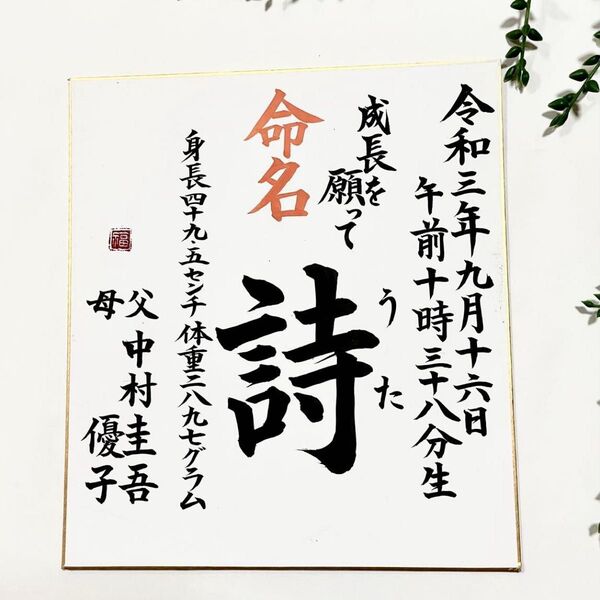 令和三年九月十六日
午前十時三十八分生
成長を
願って
命名
詩
うた
身長四十九.五センチ 体重二八九七グラム
父 中村圭吾
母 優子
福